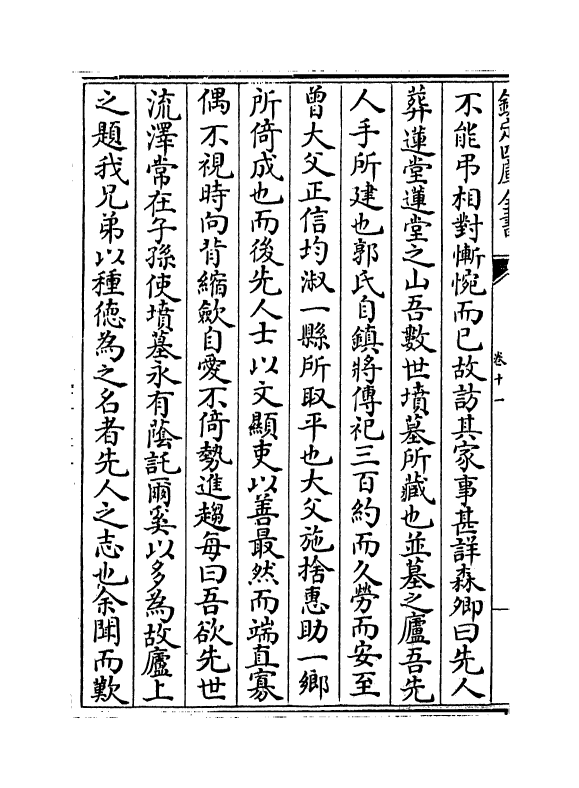 欽定四庫全書
卷十一
不能弔相對慚惋而已故訪其家事甚詳森卿曰先人
葬蓮堂蓮堂之山吾數世墳墓所藏也並墓之廬吾先
人手所建也郭氏自鎮將傳祀三百約而久勞而安至
曾大父正信均淑一縣所取平也大父施捨惠助一鄉
所倚成也而後先人士以文顯吏以善最然而端直寡
偶不視時向背縮歛自愛不倚勢進趨每曰吾欲先世
流澤常在子孫使墳墓永有蔭託爾奚以多為故廬上
之題我兄弟以種徳為之名者先人之志也余聞而歎